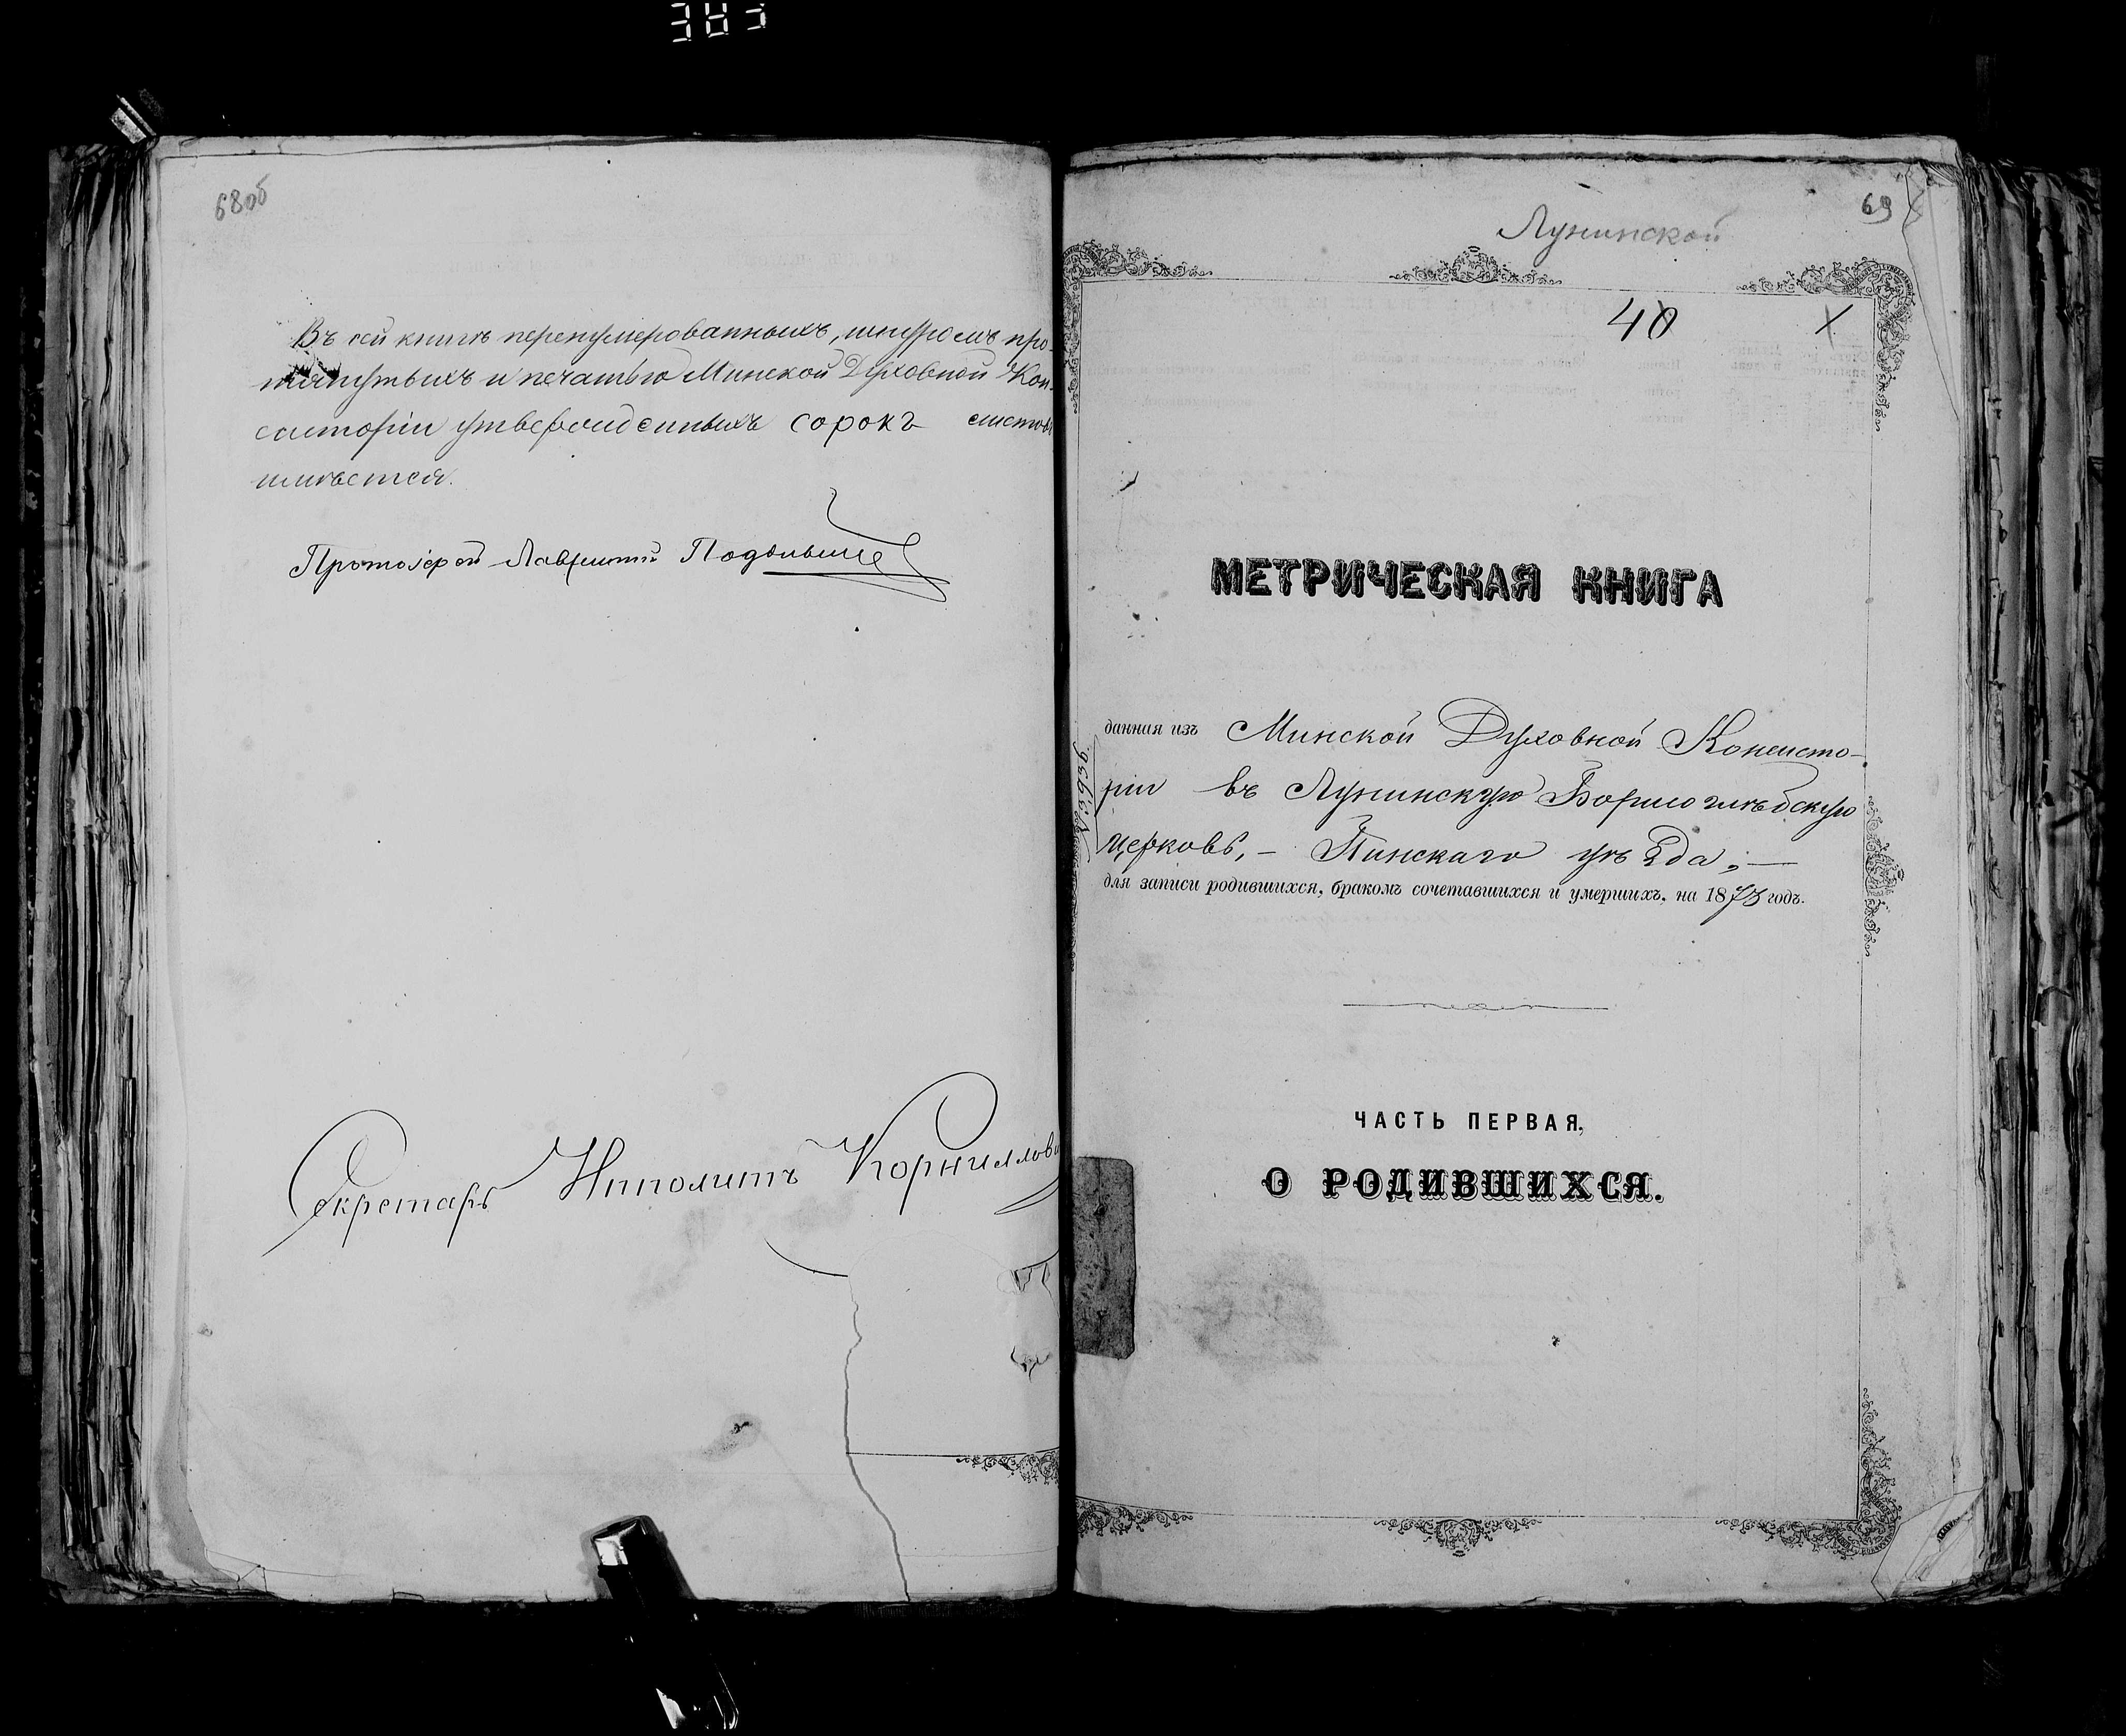 68об
Въ сей книгѣ перенумерованныхъ, шнуромъ про-
тянутыхъ и печатью Минской Духовной Кон-
систоріи утвержденныхъ сорокъ листовъ
имѣется.
Протоіерей Лаврентій
Секретарь Ипполитъ Корнилови
69
Лунинской
40 X
МЕТРИЧЕСКАЯ КНИГА
данная изъ Минской Духовной Консисто-
ріи въ Лунинскую Борисоглѣбскую
церковь, - Пинскаго уѣзда, -
№ 5936
для записи родившихся, бракомъ сочетавшихся и умершихъ, на 1873 годъ.
ЧАСТЬ ПЕРВАЯ,
О РОДИВШИХСЯ.